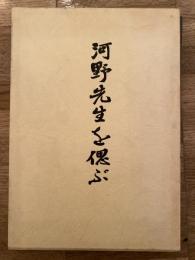 河野先生を偲ぶ